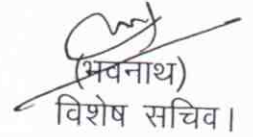 (भवनाथ)
विशेष सचिव।